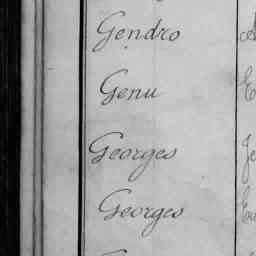 Gendro
Genu
Georges
Georges